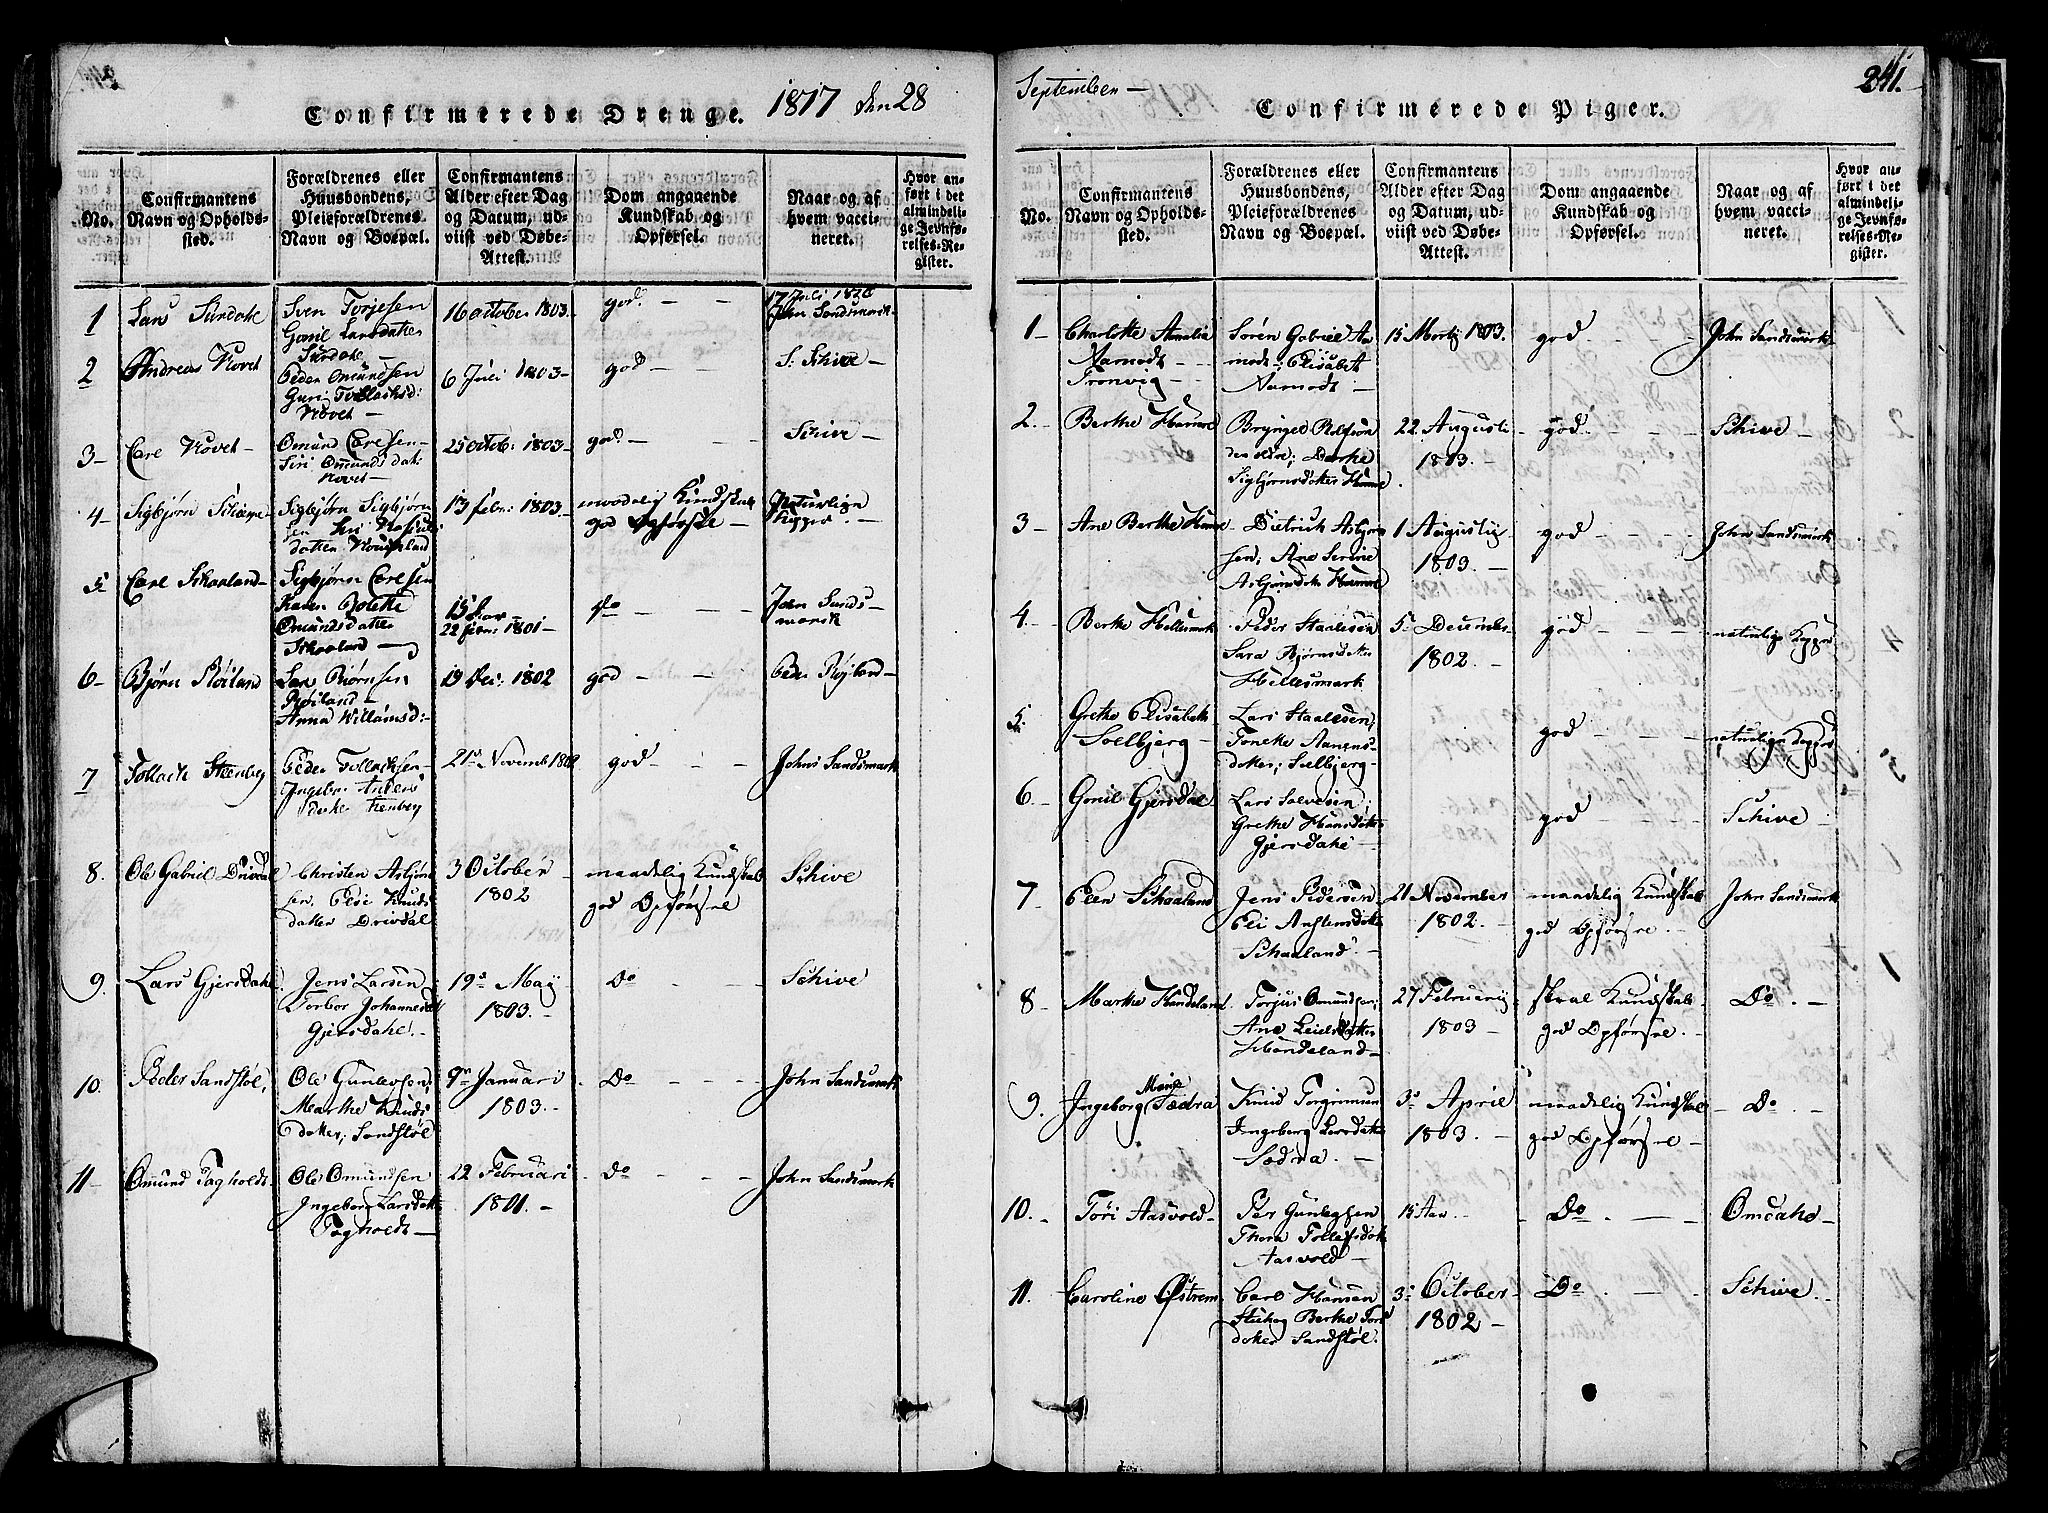 Confirmerede Drenge. 1817 den 28
No.
Confirmantens Navn og Opholds-sted.
Forældrenes eller Huusbondens, Pleieforældrenes Navn og Boepæl.
Confirmantens Alder efter Dag og Datum, ud-viist ved Døbe-Attest.
Dom angaaende Kundskab og Opførsel.
Naar og af hvem vacci-neret.
Hvor an-ført i det almindeli-ge Jevnfø-relses-Re-gister.
1 Lars Surdahl
Sven Torjesen
Gonil Larsdatter
Surdahl
16 October 1803
god
John Sandsmark
2 Andreas Hovet
Peder Omundsen
Guri Tollachsd:
Hovet
6 Juli 1803
god
S. Schive
3 Carl Hovet
Omund Carlsen
Siri Omundsdat:
Hovet
25 Octob: 1803
god
Schive
4 Sigbjørn
Sigbjørn Sigbjørn
sen
datter
13 febr: 1803
maadelig Kundskab
god Opførsel
Naturlige
Kopper
5 Carl Schaaland
Sigbjørn Carlsen
Karen Bolette
Omundsdatter
Schaaland
15 Aar
22 febr: 1801
Do
John Sands-
mark
6 Bjørn Røiland
Lars Biørnsen
Røiland
Anna Willamsd:
19 Dec: 1802
god
Peder Røyland
7 Tollach Steenberg
Peder Tollachsen
Ingebr: Anders
datter
21 November 1802
god
Johns Sandsmark
8. Ole Gabriel Drivdal
Christen Asbjørn
sen. Elsi Knuds
datter Drivdal
3 October
1802
maadelig Kundskab
god Opførsel
Schive
9. Lars Gjersdahl
Jens Larsen
Torbor Johannesd:
Gjersdahl.
19 May
1803.
Do
Schive
10. Peder Sandstøl,
Ole Gunlevsen,
Marthe Knuds
datter, Sandstøl
9 Januari
1803.
Do
John Sandsmark
11 Omund Tagholdt
Ole Omundsen
Ingebor Larsdatter
Tagholdt
22 Februari
1801.
Do
John Sandsmark
September
241.
Confirmerede Piger.
No.
Confirmantens Navn og Opholds-sted.
Forældrenes eller Huusbondens, Pleieforældrenes Navn og Boepæl.
Confirmantens Alder efter Dag og Datum, ud-viist ved Døbe-Attest.
Dom angaaende Kundskab og Opførsel.
Naar og af hvem vacci-neret.
Hvor an-ført i det almindeli-ge Jevnfø-relses-Re-gister.
1 Charlotte Amalia
Aamodt
Tronvig
Søren Gabriel Aa
modt; Elisabet
Aamodt
15 Martz 1803.
god
John Sandsmark
2. Berthe Hamre
Brynjed Rolfson
den eldre; Dorthe
Sigbjørnsdatter Hamre
22 Augusti
1803.
god
Schive
3 Ane Berthe Hamre
Dietrich Asbjørn
sen; Ane Serine
Asbjørnsdatter Hamre
1 Augustij
1803.
god
John Sandsmark
4. Berthe Hellesmark
Peder Staalesen
Sara Bjørnsdatter
Hellesmark
5 December
1802.
god
naturlige Kopper
5. Grethe Elisabeth
Solbjerg
Lars Staalesen,
Toneke Aanens-
datter; Solbjerg
god
naturlige Kopper
6. Gonil Gjersdal
Lars Salvesen;
Grethe Hansdatter
Gjersdahl
god
Schive
7 Elen Schaaland
Jens Pedersen
Eli Anstensdatter
Schaaland
21 November
1802.
maadelig Kundskab
god Opførsel.
John Sandsmark
8 Marthe Handeland
Torjus Omundsen;
Ane
Handeland
27 Februarij
1803
skral Kundskab
god Opførsel.
Do
9. Ingeborg Marie Sædra
Knud Torgrimsen
Ingeborg Larsdatter
Sædra.
3 April
1803.
maadelig Kundskab
god Opførsel
Do
10. Tori Aasvold
Per Gunlegsen
Thora Tollefsdatter
Aasvold
15 Aar
Do
Omdahl
11. Caroline Østrem
Carl Hansen
Berthe
datter Sandstøl.
3 October
1802
Do
Schive